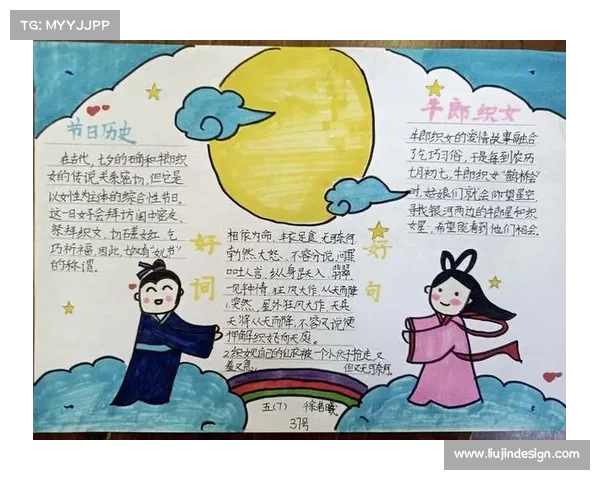 TG: MYYJJPP
节日历史
在古代，七夕的确和牛郎织
女的传说关系密切，但它是
以女性为主体的综合性节日，
这一日女子会拜访闺中密友、
祭拜织女、切磋女红、乞
巧祈福。因此，七夕有"女儿节"
的称谓。
好词
好句
相依为命、丰衣足食、无可奈何
勃然大怒、不容分说、
口吐人言、纵身跃入、翡翠
一见钟情、狂风大作、从天而降
1.突然，屋外狂风大作，天兵
天将从天而降，不容分说便
押解织女飞向天庭。
2.织女见自己的仙衣被一个小伙子抢走，又
羞又急，但又无可奈何。
牛郎织女
牛郎织女的爱情故事融合
了乞巧习俗，于是每到农历
七月初七，牛郎织女"鹊桥会"
时，姑娘们就会仰望星空
寻找银河两边的牛郎星和织
女星，希望能看到他们相会。
五(7) 徐若曦
37号
www.liujindesign.com